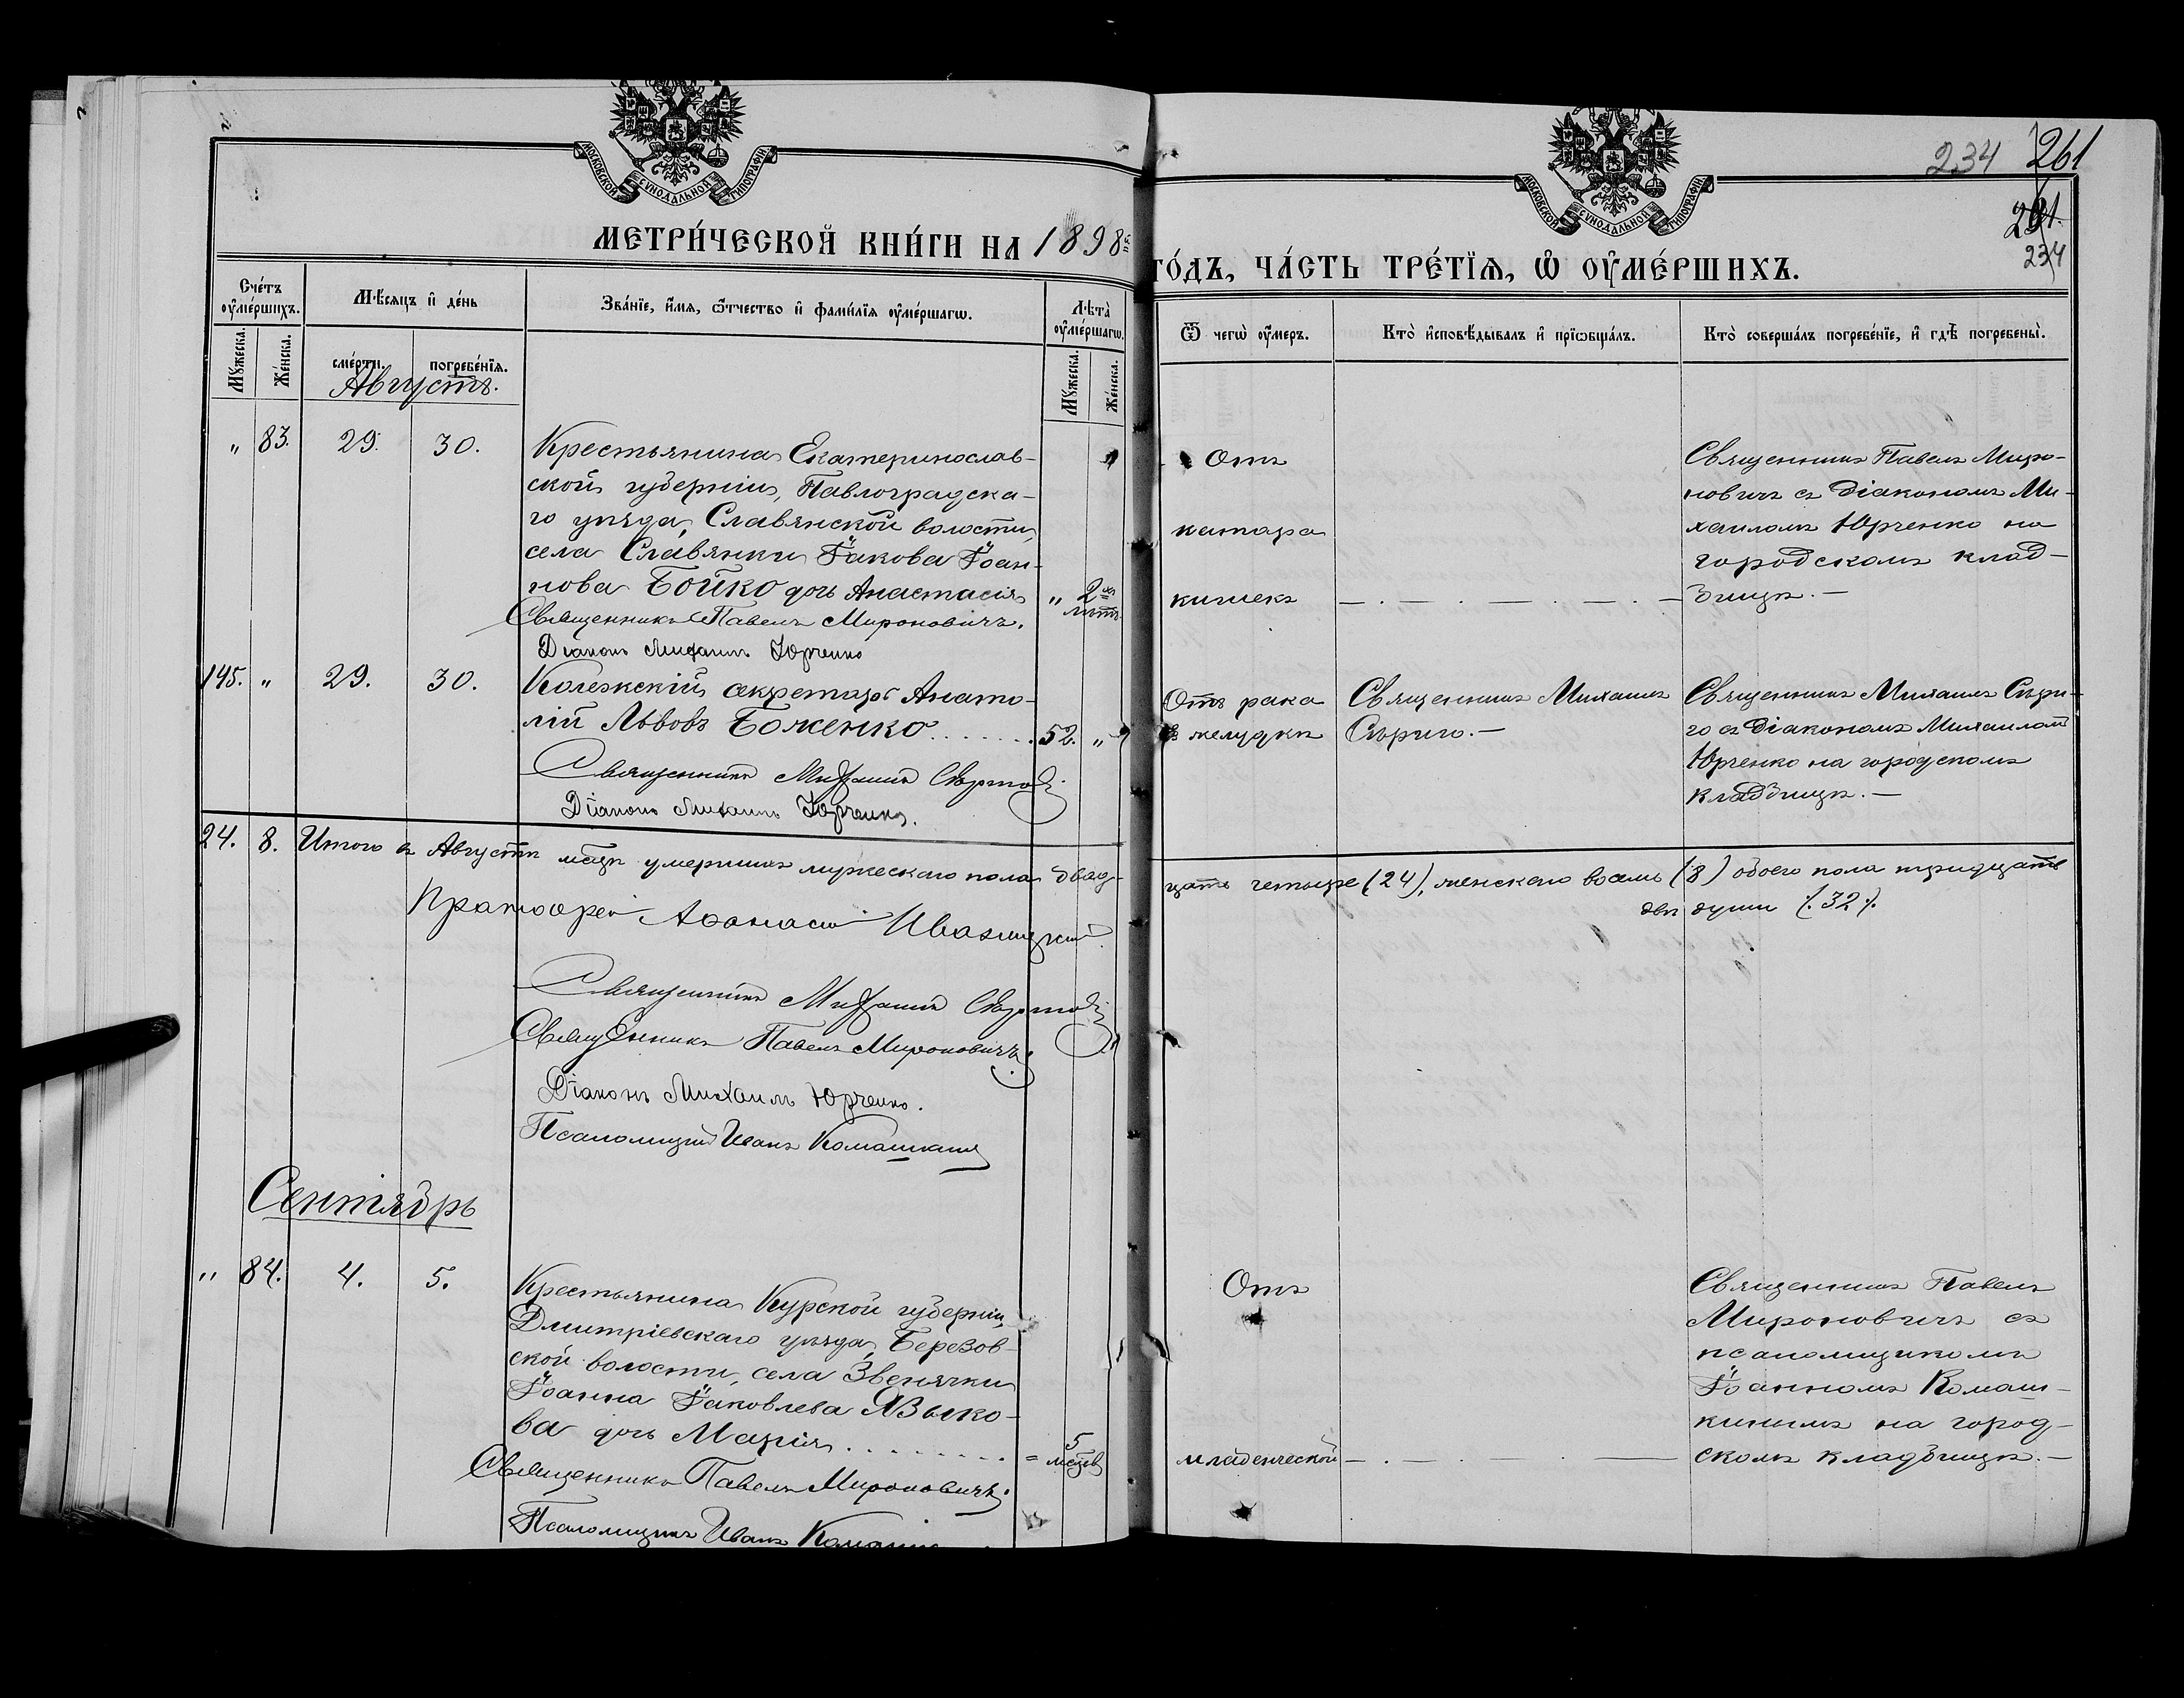 МОСКОВСКОЙ СѴНОДАЛЬНОЙ ТИПОГРАФІИ
МОСКОВСКОЙ СѴНОДАЛЬНОЙ ТИПОГРАФІИ
234 261
234
МЕТРИ́ЧЕСКОЙ КНИ́ГИ НА 1898
ГО́ДЪ, ЧА́СТЬ ТРЕ́ТІЯ, Ѡ ОУ҆МЕ́РШИХЪ.
Сче́тъ оу҆ме́ршихъ.
Мꙋ́жеска. Же́нска.
Мѣ́сяцъ и҆ де́нь
сме́рти. погребе́нїѧ.
Зва́нїе, и҆́мѧ, ѻ҆́тчество и҆ фами́лїѧ оу҆ме́ршагѡ.
Лѣ́та оу҆ме́ршагѡ.
Мꙋ́жеска. Же́нска.
Ѿ чегѡ̀ оу҆́меръ.
Кто̀ и҆сповѣ́дывалъ и҆ прїѡбща́лъ.
Кто̀ соверша́лъ погребе́нїе, и҆ гдѣ̀ погребены̀.
Августъ.
" 83. 29. 30.
Крестьянина Екатеринослав-
ской губерніи, Павлоградска-
го уѣзда, Славянской волости,
села Славянки Іакова Іоан-
нова Бойко дочь Анастасія
" 2 лѣтъ
Священникъ Павелъ Мироновичъ.
Діаконъ Михаилъ Юрченко
Отъ
катара
кишекъ
Священникъ Павелъ Миро-
новичъ съ діакономъ Ми-
хаиломъ Юрченко на
городскомъ клад-
бищѣ.—
145. " 29. 30.
Колежскій секретарь Анато-
лій Львовъ Боженко
52. "
Священникъ Михаилъ
Діаконъ Михаилъ Юрченко.
Отъ рака
въ желудкѣ
Священникъ Михаилъ
Священникъ Михаилъ
го съ діакономъ Михаиломъ
Юрченко на городскомъ
кладбищѣ.—
24. 8. Итого въ Августѣ мѣсцѣ умершихъ мужескаго пола двад-
цать четыре (24), женскаго восемь (8) обоего пола тридцать
двѣ души (32).
Протоіерей Аѳанасій
Священникъ Михаилъ
Священникъ Павелъ Мироновичъ
Діаконъ Михаилъ Юрченко.
Псаломщикъ Иванъ Комашкинъ
Сентябрь
" 84. 4. 5.
Крестьянина Курской губерніи,
Дмитріевскаго уѣзда, Березов-
ской волости, села Звенячки
Іоанна Іаковлева Языко-
ва дочь Марія
= 5 мѣсцев
Священникъ Павелъ Мироновичъ.
Псаломщикъ Иванъ
Отъ
младенческой
Священникъ Павелъ
Мироновичъ съ
псаломщикомъ
Іоанномъ Комаш-
кинымъ на город-
скомъ кладбищѣ.—